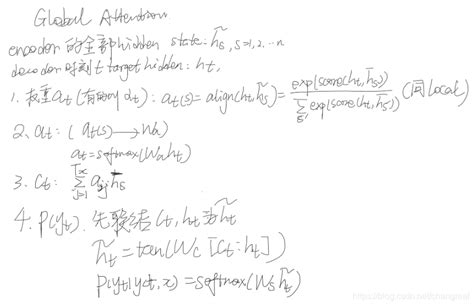 Global Attention
encoder 的全部 hidden state: h̃s, s=1,2…n
decoder 时刻 t target hidden: ht,
1. 权重 at (有的叫 αt): at(s) = align(ht, h̃s) = exp(score(ht, h̄s)) / Σs' exp(score(ht, h̄s')) (同 local)
2. at: ( at(s) → Wa )
at = softmax(Waht)
3. Ct: Σ_{j=1}^{Tx} atj h̄s
4. P(yt). 先联结 Ct, ht 为 h̃t
h̃t = tan(Wc [Ct: ht])
p(yt|y<t, x) = softmax(Ws h̃t)